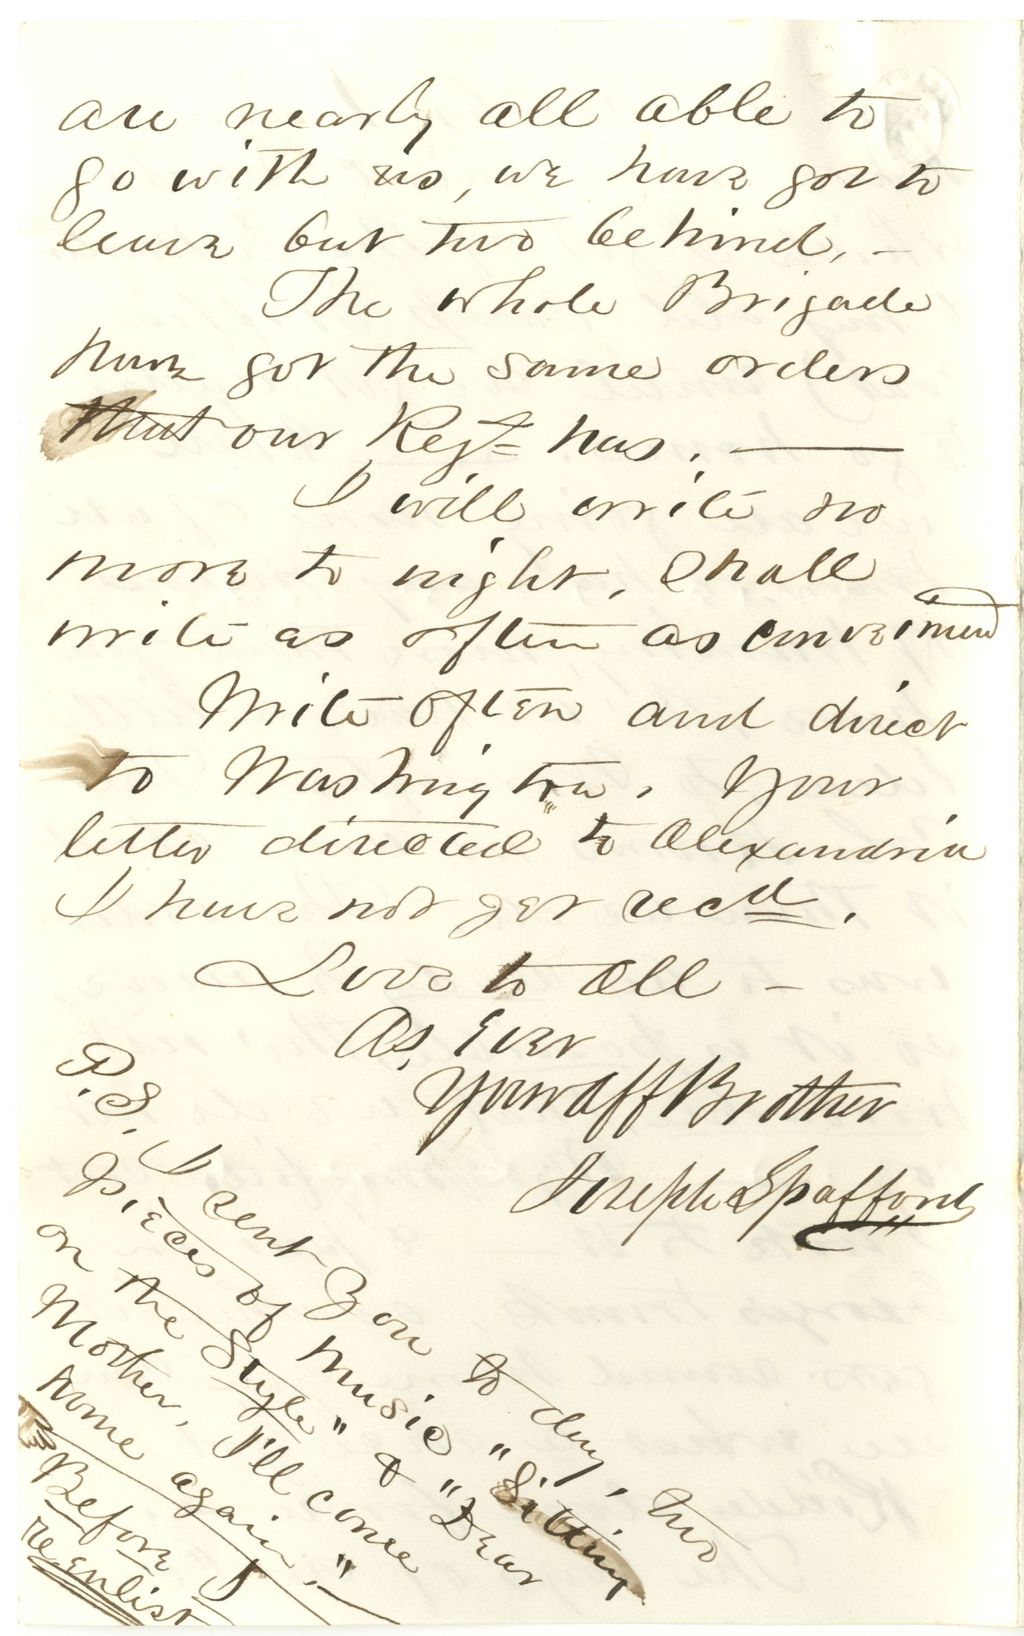 are nearly all able to
go with us, we have got to
leave but two behind, –
The whole Brigade
have got the same orders
that our Regt has. —
I will write no
more to night, Shall
write as often as convenient
Write often and direct
to Washington. Your
letter directed to Alexandria
I have not yet recd.
Love to all –
As, Ever
Your Aff Brother
Joseph Spafford
P.S. I sent you to day, two
pieces of music "Sitting
on the Style" & "Dear
Mother, I'll come
home again," –
Before I
reenlist